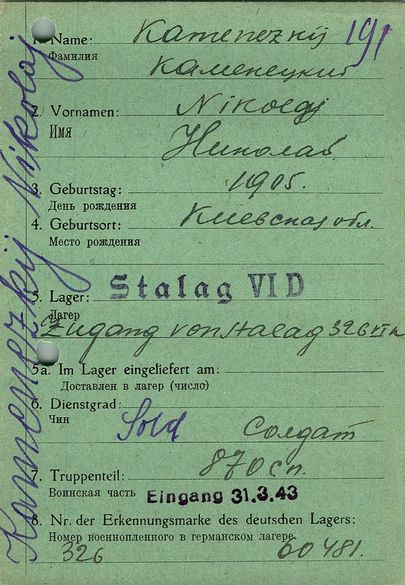 1. Name: Kamenezkij 191
Фамилия Каменецкий
2. Vornamen: Nikolaj
Имя Николай
3. Geburtstag: 1905.
День рождения
4. Geburtsort: Киевская обл.
Место рождения
5. Lager: Stalag VI D
Лагерь
Zugang von Stalag 326 VI K
5a. Im Lager eingeliefert am:
Доставлен в лагерь (число)
6. Dienstgrad: Sold Солдат
Чин
7. Truppenteil: 870 сп.
Воинская часть Eingang 31.3.43
8. Nr. der Erkennungsmarke des deutschen Lagers:
Номер военнопленного в германском лагере
326 60481.
Kamenezkij Nikolaj